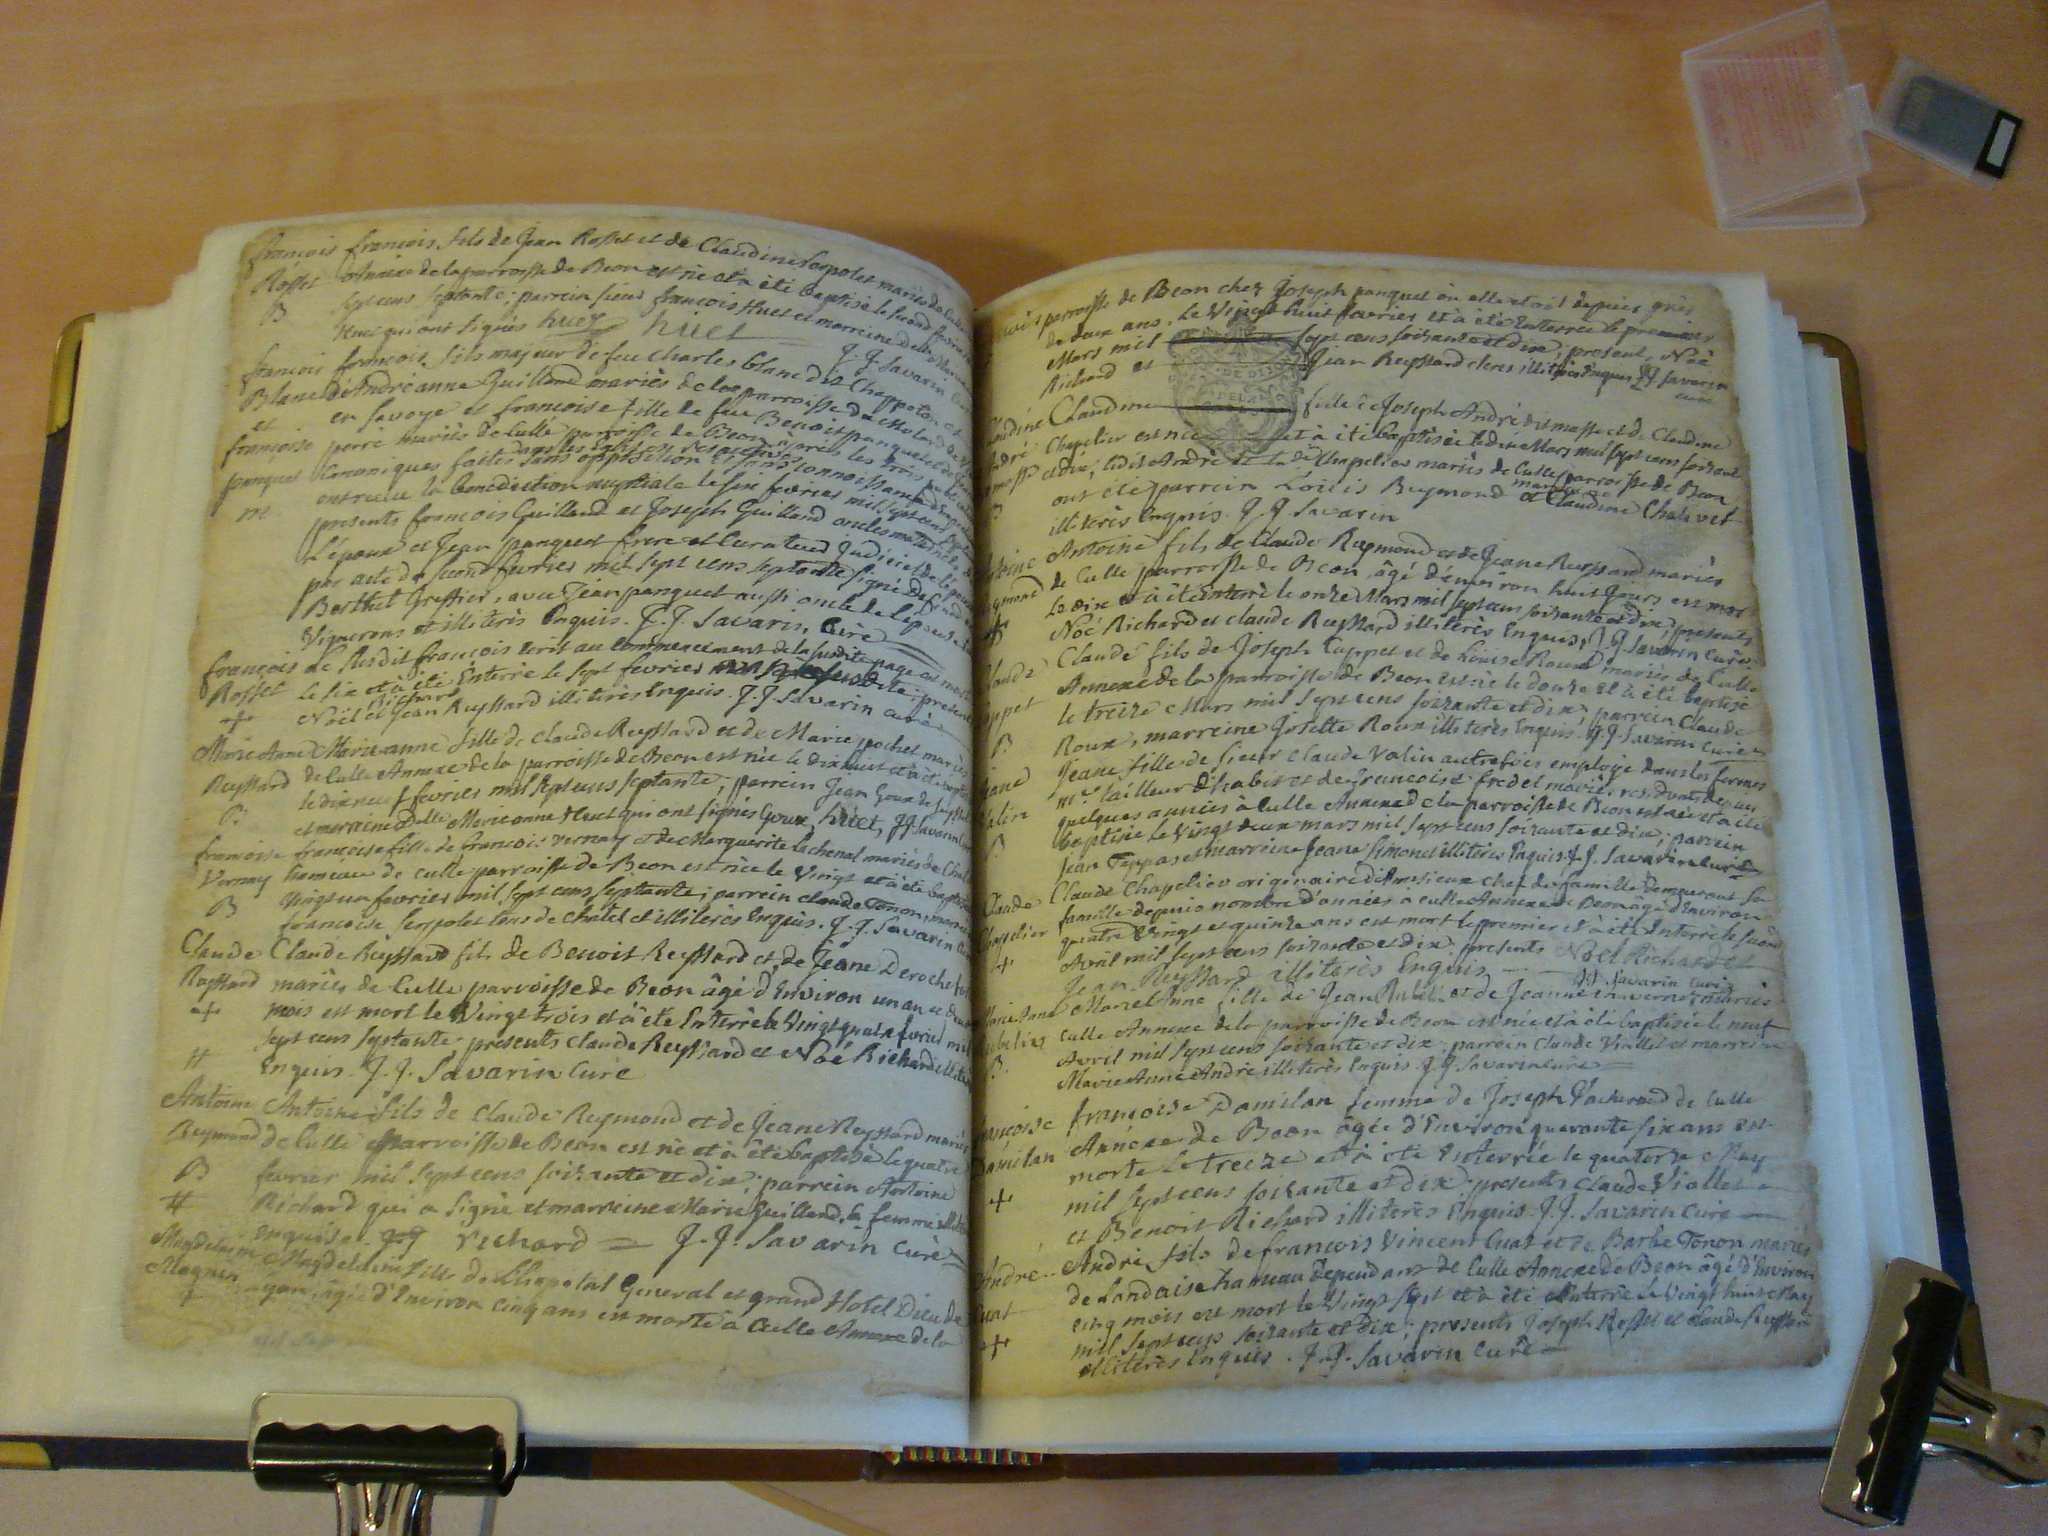 françois françois, fils de Jean Rosset et de Claudine Serpolet mariés de Culle
Rosset Annexe de la parroisse de Beon est né et à été baptisé le second fevrier mil
B sept cens septante; parrein sieur françois Huet et marreine delle Marianne
Huet qui ont signés huet huet
J. J. Savarin Curé
françois françois, fils majeur de feu Charles blanc dit Chappoton et
Blanc d'Andréanne Guilland mariés de la parroisse du Molard de
et en Savoye et françoise fille de feu Benoit panquet et de
françoise perré mariés de Culle parroisse de Beon, après les trois publications
panquet Canoniques faites sans opposition ni connoissance d'Empêchement
m. ont receu la benediction nuptiale le six fevrier mil sept cens septante
presents françois Guilland et Joseph Guilland oncles maternels de
L'époux et Jean panquet frere et Curateur judiciel de l'épouse
par acte du second fevrier mil sept cens septante signé
Berthet Greffier, avec Jean panquet aussi oncle de l'épouse
Vignerons et illiterés Enquis. J. J. Savarin, Curé
françois le susdit françois écrit au commencement de la susdite page est mort
Rosset le six et à été Enterré le sept fevrier; presents
+ Noël Richard et Jean Reyssard illiterés Enquis. J. J. Savarin curé
Marie Anne Marie anne fille de Claude Reyssard et de Marie pochet mariés
Reyssard de Culle Annexe de la parroisse de Beon est née le dix huit et à été baptisée
B le dixneuf fevrier mil sept cens septante; parrein Jean Goux de
et marreine delle Marie anne Huet qui ont signés Goux, huet, J. J. Savarin Curé
françoise françoise fille de francois vernay et de Marguerite Lachenal mariés de Chatel
Vernay hameau de culle parroisse de Beon est née le vingt et à été baptisée
B vingt un fevrier mil sept cens septante; parrein claude Tonon, marreine
francoise serpolet tous de chatel et illiterés enquis. J. J. Savarin Curé
Claude Claude Reyssard fils de Benoit Reyssard et de Jeane Derochefort
Reyssard mariés de Culle parroisse de Beon âgé d'Environ un an et deux
+ mois est mort le Vingt trois et à été Enterré le Vingt quatre fevrier mil
sept cens septante. presents Claude Reyssard et Noé Richard illiterés
# Enquis. J. J. Savarin Curé
Antoine Antoine fils de Claude Reymond et de Jeane Reyssard mariés
Reymond de Culle parroisse de Beon est né et à été baptisé le quatre
B fevrier mil sept cens soixante et dix; parrein Antoine
# Richard qui a signé et marreine Marie Guilland sa femme illiterée
enquise. richard J. J. Savarin Curé
Magdeleine Magdeleine fille de L'hopital General et grand Hotel Dieu de
Magnin Lyon, âgée d'Environ cinq ans est morte à Culle Annexe de la
+
parroisse de Beon chez Joseph panquet où elle etoit depuis près
de deux ans, le Vingt huit fevrier et à été Enterrée le premier
Mars mil sept cens soixante et dix; presents, Noé
Richard et Jean Reyssard clercs illiterés Enquis J. J. Savarin
curé
Claudine Claudine fille de Joseph André dit masset et de Claudine
André Chapelier est née et à été baptisée le dix Mars mil sept cens soixante
masset et dix; ledit André et la de Chapelier mariés de Culle parroisse de Beon
B ont été parrein Loüis Reymond et marreine Claudine Chalivet
illiterés Enquis. J. J. Savarin
Antoine Antoine fils de Claude Reymond et de Jeane Reyssard mariés
Reymond de Culle parroisse de Beon, âgé d'environ huit Jours est mort
+ Le dix et à été Enterré le onze Mars mil sept cens soixante et dix; presents
Noé Richard et Claude Reyssard illiterés Enquis, J. J. Savarin Curé
Claude Claude fils de Joseph Cuppet et de Loüise Roux mariés de Culle
Cuppet Annexe de la parroisse de Beon est né le douze et à été baptisé
B le treize Mars mil sept cens soixante et dix; parrein Claude
Roux, marreine Josette Roux illiterés Enquis. J. J. Savarin Curé
Jeane Jeane fille de sieur Claude Valin autrefois employé dans les fermes
Valin mre. tailleur d'habits et de francoise fredet mariés residents depuis
B quelques années à Culle Annexe de la parroisse de Beon est née et à été
baptisée le Vingt deux mars mil sept cens soixante et dix; parrein
Jean Teppaz et marreine Jeane Simonet illiterés Enquis. J. J. Savarin Curé
Claude Claude Chapelier originaire d'Amesieux chef de famille demeurant sa
Chapelier famille depuis nombre d'années à culle Annexe de Beon âgé d'Environ
+ quatre vingt et quinze ans est mort le premier et à été Enterré le second
Avril mil sept cens soixante et dix presents Noël Richard et
Jean Reyssard illiterés Enquis J. J. Savarin Curé
Marie Anne Marie Anne fille de Jean et de Jeanne vernay mariés
culle Annexe de la parroisse de Beon est née et à été baptisée le neuf
B. Avril mil sept cens soixante et dix; parrein Claude Viallet et marreine
Marie Anne André illiterés Enquis J. J. Savarin Curé
françoise françoise Damilan femme de Joseph Vacherand de Culle
Damilan Annexe de Beon âgée d'Environ quarante six ans est
+ morte Le treize et à été Enterrée le quatorze May
mil sept cens soixante et dix; presents Claude Viallet
et Benoit Richard illiterés Enquis. J. J. Savarin Curé
André André fils de francois Vincent Cuat et de Barbe Tonon mariés
Cuat de Landaise hameau dependant de Culle Annexe de Beon âgé d'Environ
+ cinq mois est mort le Vingt sept et à été Enterré le Vingt huit May
mil sept cens soixante et dix; presents Joseph Rosset et Claude Reyssard
illiterés Enquis. J. J. Savarin Curé